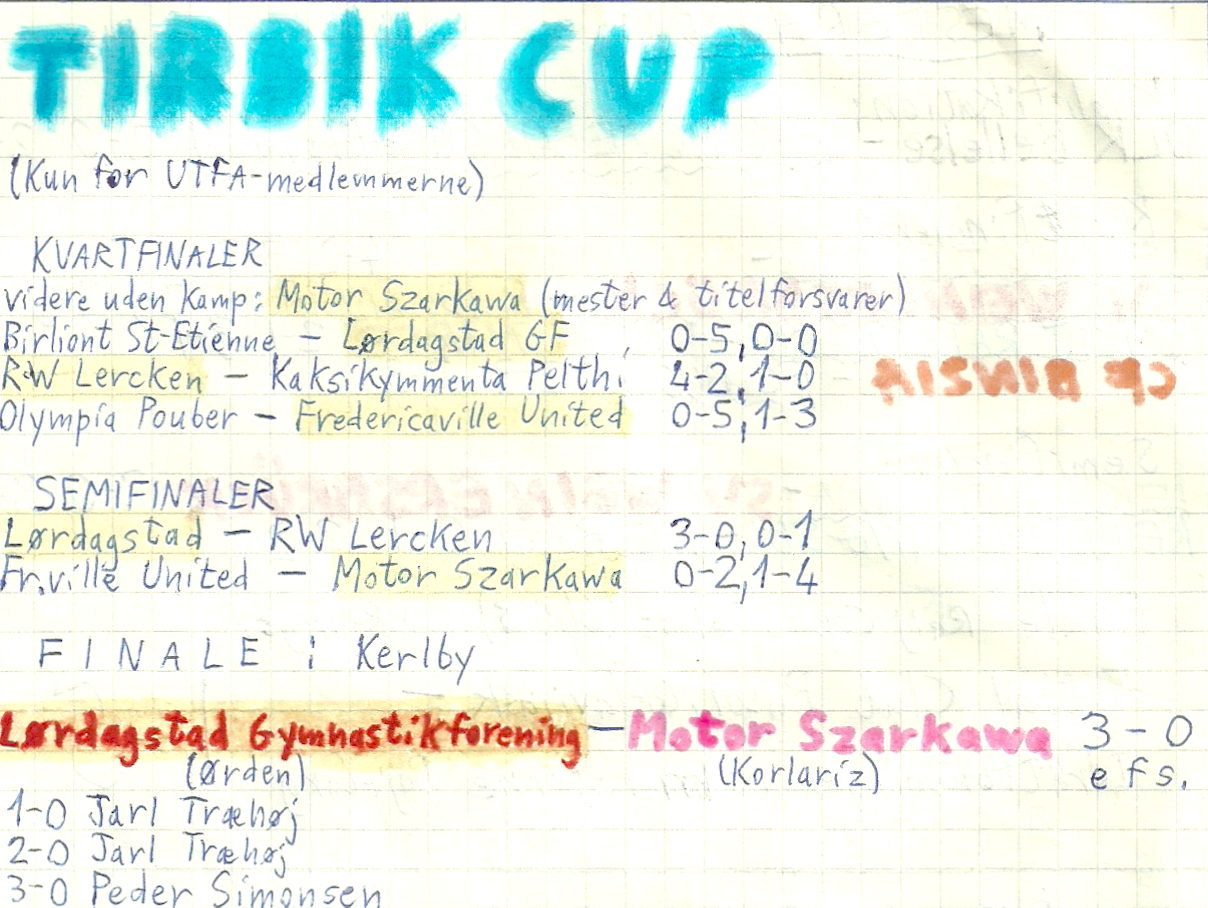 TIRBIK CUP
(Kun for UTFA-medlemmerne)
KVARTFINALER
videre uden kamp: Motor Szarkawa (mester & titelforsvarer)
Birliont St-Etienne – Lørdagstad GF 0-5, 0-0
RW Lercken – Kaksikymmenta Pelthi 4-2, 1-0
Olympia Pouber – Fredericaville United 0-5, 1-3
SEMIFINALER
Lørdagstad – RW Lercken 3-0, 0-1
Fr.ville United – Motor Szarkawa 0-2, 1-4
FINALE : Kerlby
Lørdagstad Gymnastikforening – Motor Szarkawa 3-0
(Ørden) (Korlariz) efs.
1-0 Jarl Træhøj
2-0 Jarl Træhøj
3-0 Peder Simonsen